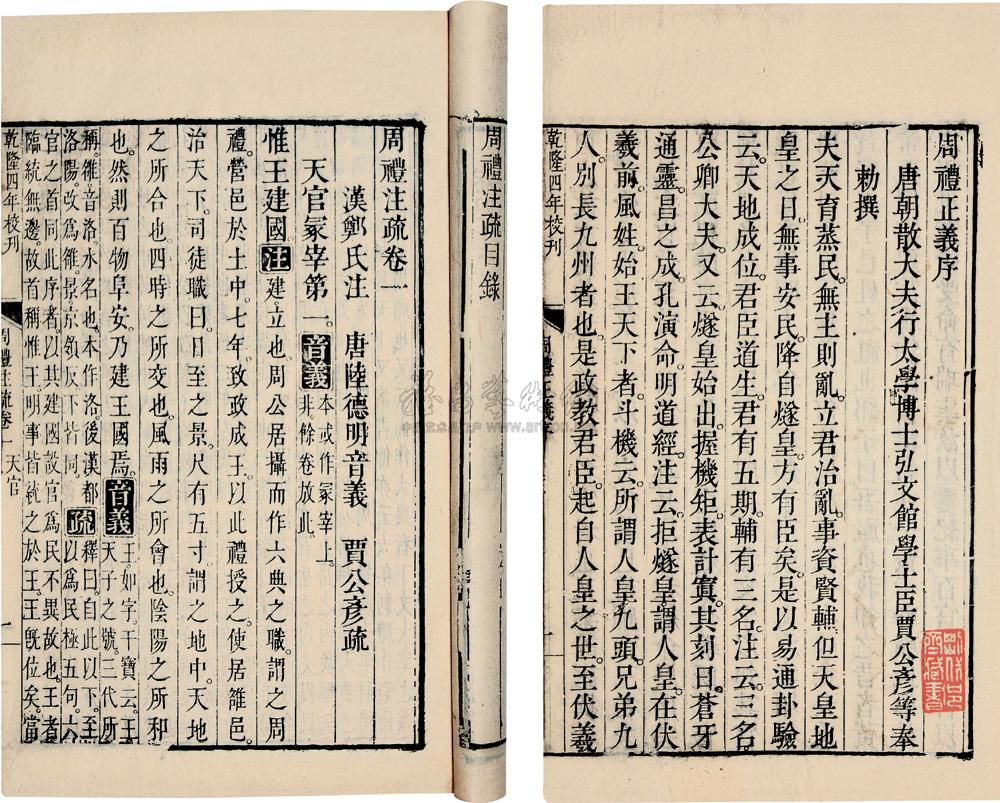 周禮正義序
唐朝散大夫行太學博士弘文館學士臣賈公彥等奉
勅撰
夫天育蒸民。無主則亂。立君治亂。事資賢輔。但天皇地
皇之日。無事安民。降自燧皇。方有臣矣。是以易通卦驗
云。天地成位。君臣道生。君有五期。輔有三名。注云。三名。
公卿大夫。又云。燧皇始出。握機矩。表計寘。其刻曰。蒼牙
通靈。昌之成。孔演命。明道經。注云。拒燧皇。謂人皇。在伏
羲前。風姓。始王天下者。斗機云。所謂人皇九頭。兄弟九
人。別長九州者也。是政教君臣。起自人皇之世。至伏羲
乾隆四年校刊
周禮正義序
周禮注疏目錄
周禮注疏卷一
漢鄭氏注 唐陸德明音義 賈公彥疏
天官冢宰第一。音義本或作冢宰上。非。餘卷放此。
惟王建國注建。立也。周公居攝而作六典之職。謂之周
禮。營邑於土中。七年。致政成王。以此禮授之。使居雒邑。
治天下。司徒職曰。日至之景。尺有五寸。謂之地中。天地
之所合也。四時之所交也。風雨之所會也。陰陽之所和
也。然則百物阜安。乃建王國焉。音義王如字。干寶云。王天子之號。三代所
稱。雒音洛。水名也。本作洛。後漢都洛陽。改爲雒。景。京領反。下皆同。疏釋曰。自此以下。至以爲民極五句。六
官之首。同此序者。以其建國設官爲民不異故也。王者
臨統無邊。故首稱惟王。明事皆統之於王。王既位矣。當
乾隆四年校刊
周禮注疏卷一 天官
一